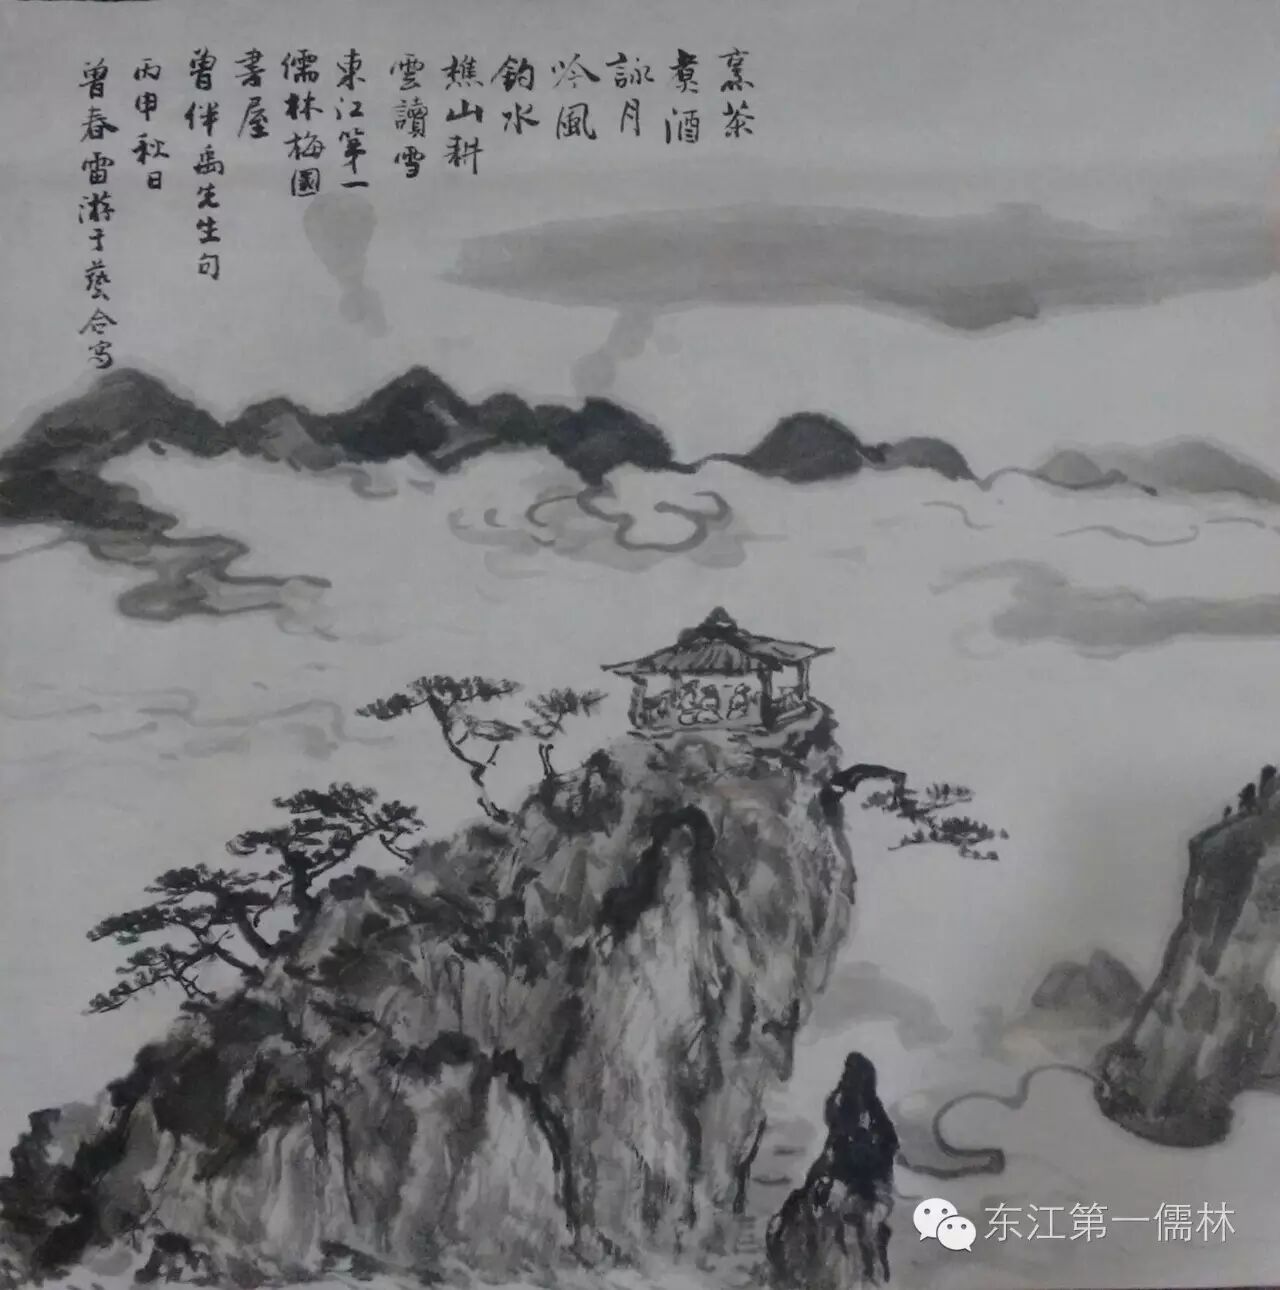 烹茶
煑酒
詠月
吟風
釣水
樵山耕
雲讀雪
東江第一
儒林梅園
書屋
曾伴禹先生句
丙申秋日
曾春雷游于藝合寫
东江第一儒林